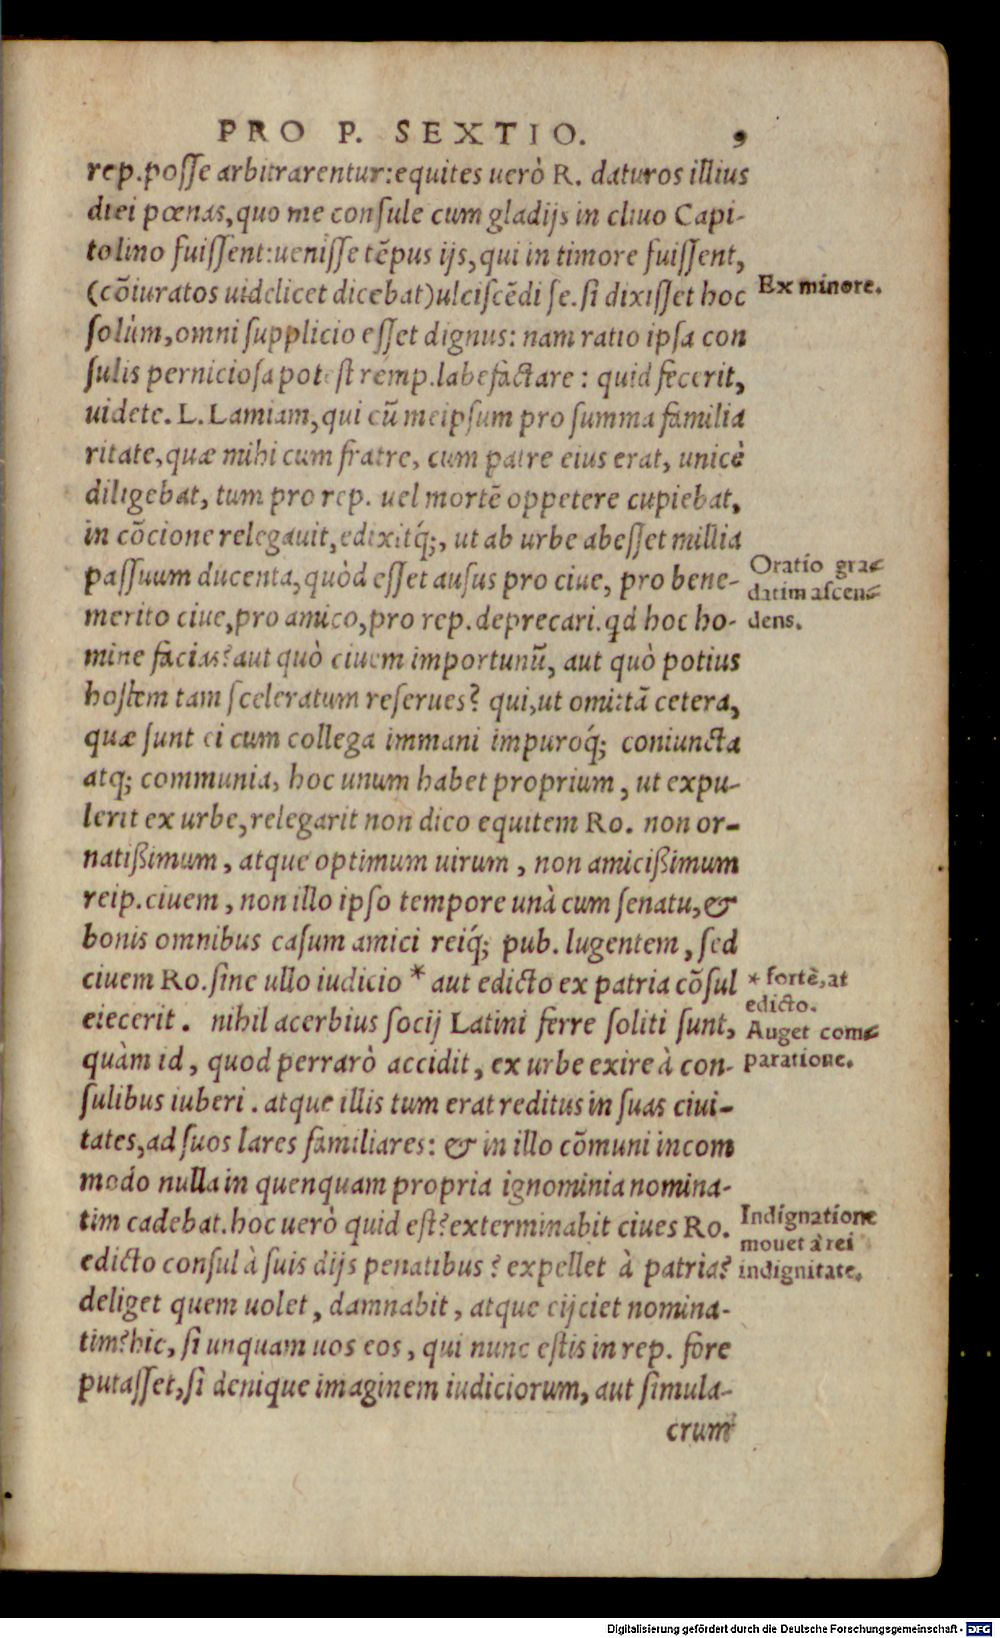 PRO P. SEXTIO. 9
rep.posse arbitrarentur:equites uerò R. daturos illius
diei pœnas,quo me consule cum gladijs in cliuo Capi-
tolino fuissent:uenisse tẽpus ijs,qui in timore fuissent,
(cõiuratos uidelicet dicebat)ulciscẽdi se.si dixisset hoc
Ex minore.
solùm,omni supplicio esset dignus: nam ratio ipsa con
sulis perniciosa potest remp.labefactare: quid fecerit,
uidete. L. Lamiam,qui cũ meipsum pro summa familia
ritate,quæ mihi cum fratre, cum patre eius erat, unicè
diligebat, tum pro rep. uel mortẽ oppetere cupiebat,
in cõcione relegauit,edixitq́;, ut ab urbe abesset millia
passuum ducenta,quòd esset ausus pro ciue, pro bene-
Oratio gra-
datim ascen-
dens.
merito ciue,pro amico,pro rep.deprecari.qd hoc ho-
mine facias?aut quò ciuem importunũ, aut quò potius
hostem tam sceleratum reserues? qui,ut omittã cetera,
quæ sunt ei cum collega immani impuroq́; coniuncta
atq; communia, hoc unum habet proprium, ut expu-
lerit ex urbe,relegarit non dico equitem Ro. non or-
natißimum, atque optimum uirum, non amicißimum
reip.ciuem, non illo ipso tempore unà cum senatu,&
bonis omnibus casum amici reiq́; pub. lugentem, sed
ciuem Ro.sine ullo iudicio * aut edicto ex patria cõsul
* fortẽ,at
edicto.
eiecerit. nihil acerbius socij Latini ferre soliti sunt,
Auget com-
paratione.
quàm id, quod perrarò accidit, ex urbe exire à con-
sulibus iuberi. atque illis tum erat reditus in suas ciui-
tates,ad suos lares familiares: & in illo cõmuni incom
modo nulla in quenquam propria ignominia nomina-
tim cadebat.hoc uerò quid est?exterminabit ciues Ro.
Indignatione
mouet à rei
indignitate.
edicto consul à suis dijs penatibus? expellet à patria?
deliget quem uolet, damnabit, atque eijciet nomina-
tim?hic, si unquam uos eos, qui nunc estis in rep. fore
putasset,si denique imaginem iudiciorum, aut simula-
crum
Digitalisierung gefördert durch die Deutsche Forschungsgemeinschaft - DFG